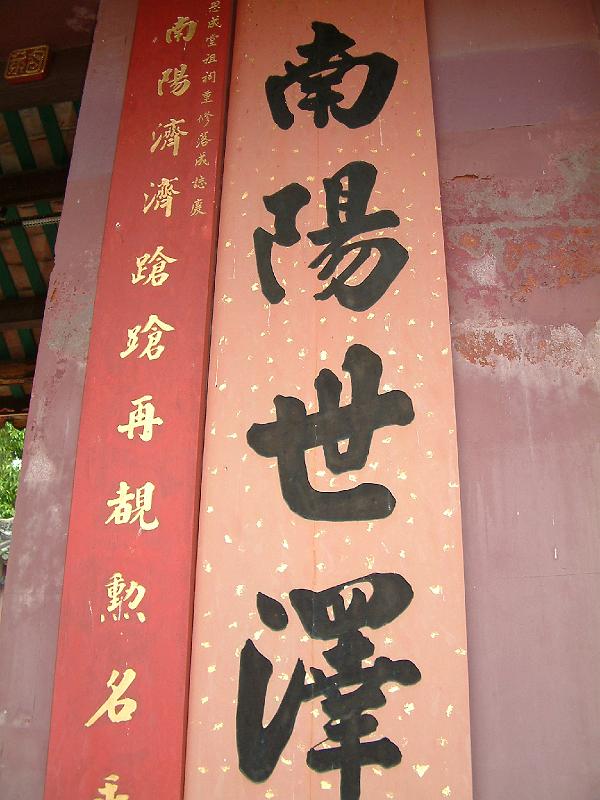 南陽世澤
思成堂祖祠重修落成誌慶
南陽濟濟蹌蹌再覩勲名